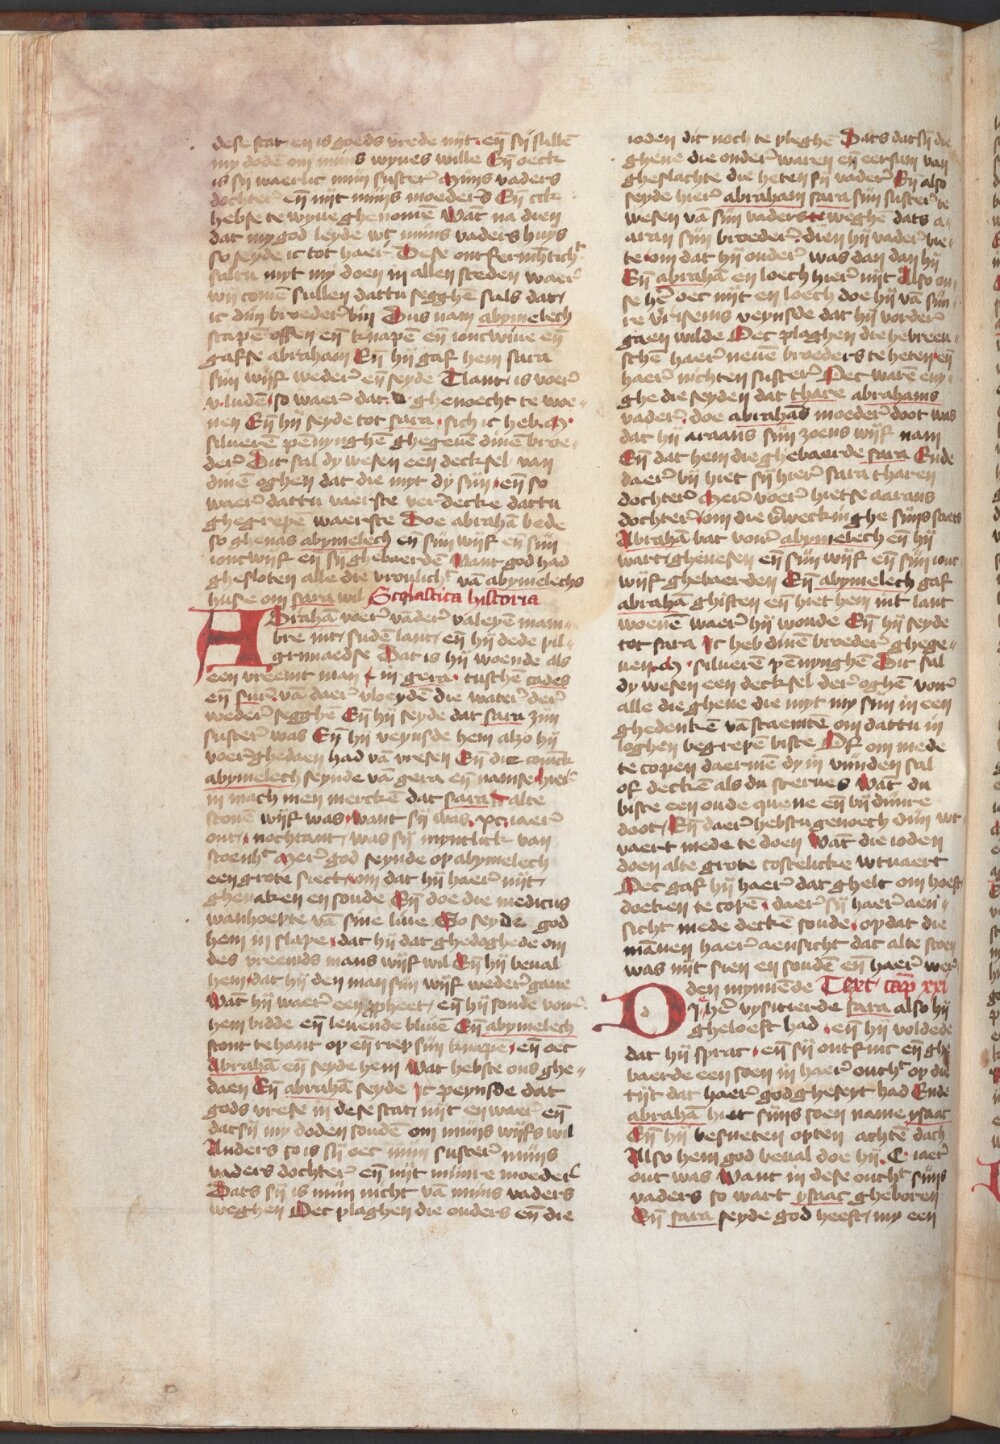 dese stat en is goeds vrede nijt. en̄ sij sullē
my dodē om mijns wyues wille En̄ oeck
is sij waerlic mijn suster mijns vaders
dochter en̄ nijt mijns moeders En̄ ick
hebse te wyue ghenomē Mat na dien
dat my god leyde wt mijns vaders huys
so seyde ic tot haer Dese ontfermh̄tich̄t
saltu myt my doen in allen steden waer
wij comē sullen dattu segghē sals dat
ic dijn broeder bin Dus nam abymelech
scapē ossen en̄ knapē en̄ ioncwiue en̄
gafse abraham En̄ hij gaf hem sara
sijn wijf weder en̄ seyde Tlant is voer
v luden so waer dat v ghenoecht te woe-
nen En̄ hij seyde tot sara sich ic heb .M.
silueren pēnynghē ghegeuē dinē broe-
der Dit sal dy wesen een decksel van
dinē oghen dat die myt dy sijn en̄ so
waer dattu vaerste verdecke dattu
ghegrepe waerste Doe abrahā bede
so ghenas abymelech en sijn wijf en̄ sijn
ioncwijf en sij ghebaerdē Want god had
ghesloten alle die vroulich̄t vā abymelechs
huse om sara wil Scolastica historia
Abraham voer vader valeyē mam-
bre int sudē lant en̄ hij dede pil-
grimaedse Dat is hij woende als
een vreemt man in gera tusschē cades
en̄ sur. vā daer vloeydē die water der
weder segghē En̄ hij seyde dat sara zijn
suster was En̄ hij veynsde hem alzo hij
voer ghedaen had vā vresen En̄ die coninck
abymelech seynde vā gera en̄ namse hier
in mach men merckē dat sara alte
sconē wijf was want sij was .xc. iaer
out nochtant was sij mynlick van
scoenh̄t Mer god seynde op abymelech
een grote siect om dat hij haer nijt
ghenaken en soude En̄ doe die medicus
wanhoepte vā sine liue So seyde god
hem in slape dat hij dat ghedoghede om
des vreemds mans wijf wil En̄ hij beual
hem dat hij den man sijn wijf weder gaue
Wāt hij waer een ppheet en̄ hij soude voir
hem bidde en̄ leuende bliuē En̄ abymelech
stont te hant op en riep sijn knapē en̄ oec
Abrahā en̄ seyde hem Wat hebste ons ghe-
daen En̄ abrahā seyde Ic peynsde dat
gods vrese in dese stat nijt en waer en̄
dat sij my doden soudē om mijns wijfs wil
Anders so is sij oec mijn suster mijns
vaders dochter en̄ nijt mijnre moeder
Dats sij is mijn nicht vā mijns vaders
weghen Oec plaghen die ouders en̄ die
ioden dit noch te pleghē Dats dat sij die
ghene die onder waren en̄ eersijn van
gheslachte die heten sij vader En̄ also
seyde hier abraham sara sijn suster te
wesen vā sijn vaders weghe dats a-
aran sijn broeder dien hij vader he-
te om dat hij ouder was dan dan hij
En̄ abrahā en loech hier nijt Also on-
se hē oec nijt en loech doe hij vā sijn
re v̄risenis veynsde dat hij vorder
gaen wilde Oec plaghen die hebreeu-
schē haer neuē broeders te heten en̄
haer nichten suster Oec warē eni-
ghe die seyden dat thare abrahams
vader doe abrahās moeder doot was
dat hij araans sijn zoens wijf nam
En̄ dat hem die ghebaerde sara Ende
daer bij hiet sij hier sara tharen
dochter Mer voer hietse aarans
dochter om die v̄weckinghe sijns saets
Abrahā bat voer abymelech en̄ hij
wart ghenesen en̄ sijn wijf en̄ sijn ionc
wijf ghebaerden En̄ abymelech gaf
abrahā ghiften en̄ hiet hem int lant
woenē waer hij woude En̄ hij seyde
tot sara Ic heb dinē broeder ghege-
uen .M. siluerē pēnynghē Dit sal
dy wesen een decksel der oghē voir
alle die ghene die myt my sijn in een
ghedenckē vā scaemtē om dattu in
loghen begrepē biste Of om mede
te copen daermē dy in vijnden sal
of deckē als du sterues Wāt du
biste een oude quene en̄ bij dijnre
doot En̄ daer hebstu genoech dijn wt
vaert mede te doen Wāt die ioden
doen alte grote costelicke wtuaert
Oec gaf hij haer dat ghelt om hoeft
doeken te copē daer sij haer aen-
sicht mede deckē soude op dat die
mānen haer aensicht dat alte scoen
was nijt sien en soudē en̄ haer wer
den mynnēde Text cap xxi
Die hē vysitierde sara also hij
gheloeft had en̄ hij voldede
dat hij sprac en̄ sij ontfinc en̄ ghe
baerde een soen in haer outh̄t op die
tijt dat haer god gheseyt had Ende
abrahā hiet sijns soen name ysaac
En̄ hij besneten opten achtē dach
Also hem god beual doe hij .C. iaer
out was Want in dese outh̄t sijns
vaders so wart ysaac gheboren
En̄ sara seyde god heeft my een